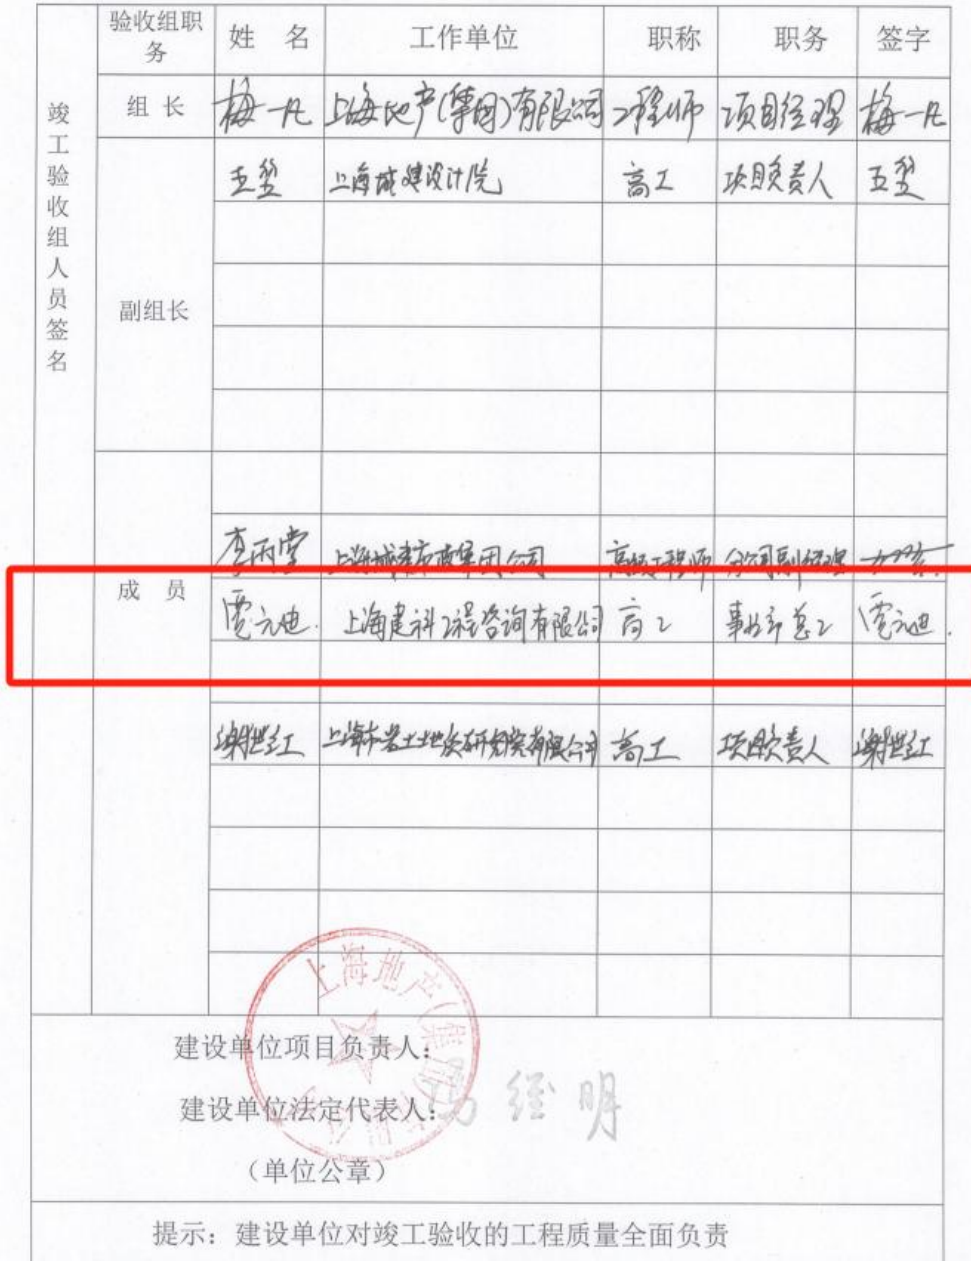 验收组职务 姓 名 工作单位 职称 职务 签字
竣工验收组人员签名
组 长 梅一凡 上海地产(集团)有限公司 工程师 项目经理 梅一凡
副组长
上海城建设计院 高工 项目负责人
李丙堂 上海城建市政集团公司 高级工程师 分公司副经理
成 员
贾元迪 上海建科工程咨询有限公司 高工 事业部总工 贾元迪
谢世红 上海市岩土地质研究院有限公司 高工 项目负责人 谢世红
上海地产(集团)有限公司
建设单位项目负责人:
建设单位法定代表人: 冯经明
(单位公章)
提示:建设单位对竣工验收的工程质量全面负责